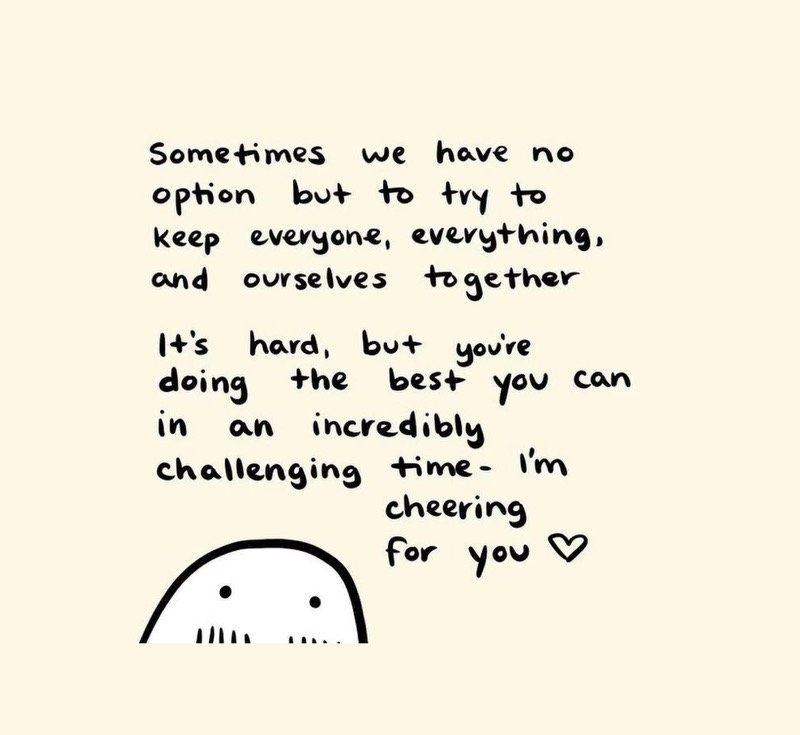 Sometimes we have no
option but to try to
keep everyone, everything,
and ourselves together
It's hard, but you're
doing the best you can
in an incredibly
challenging time- I'm
cheering
for you ♡